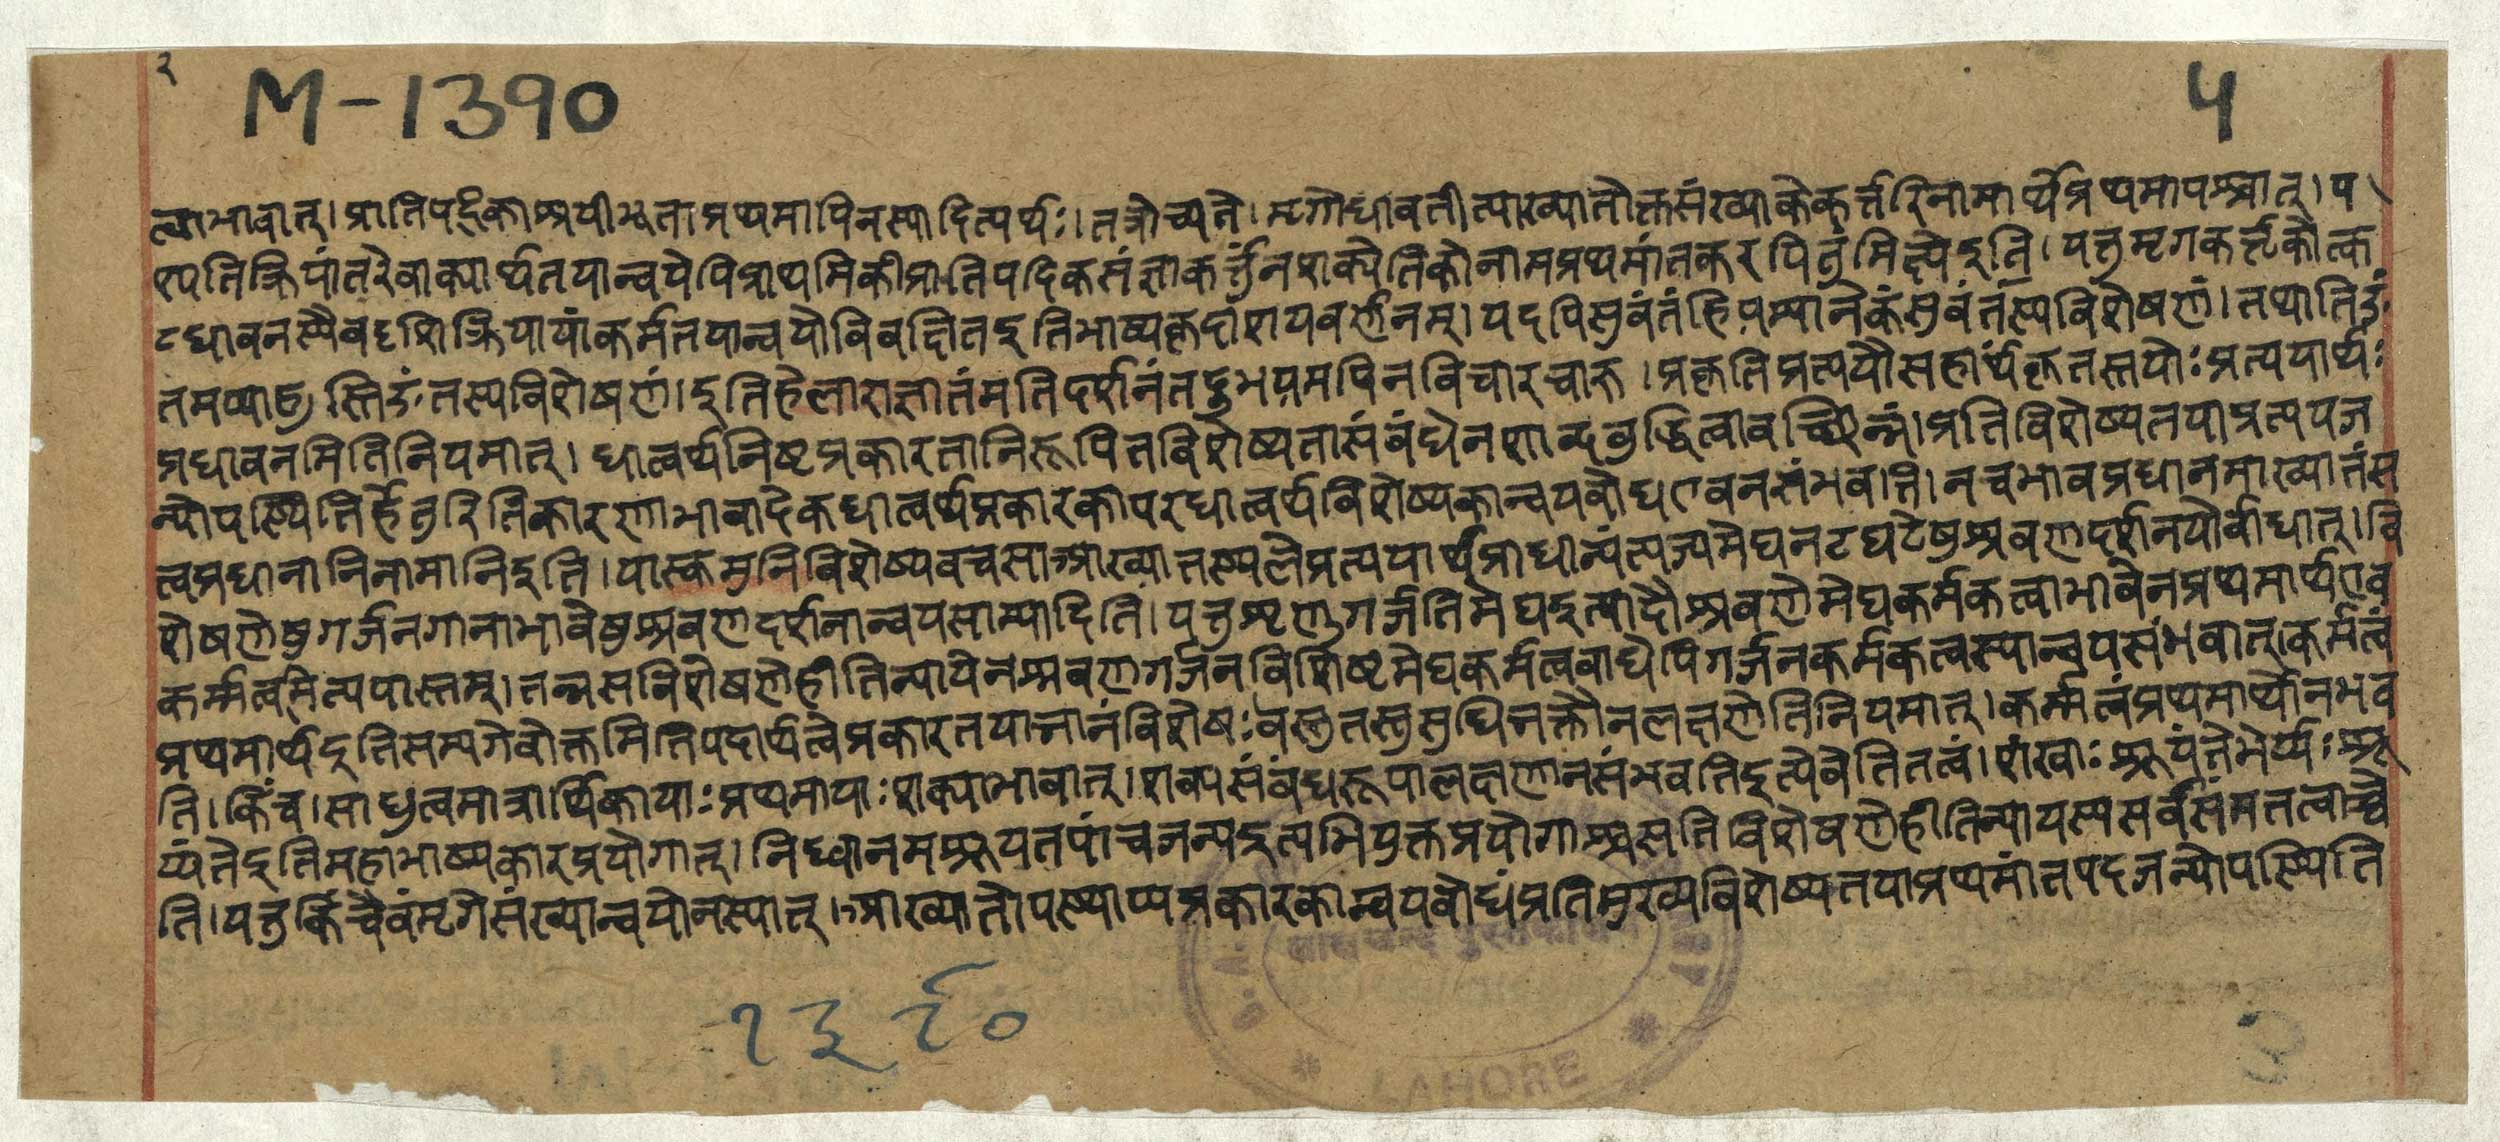 २
M-1390
५
त्वाभावात्। प्रातिपदिकाश्रयीभूता प्रथमापिनस्यादित्यर्थः। तत्रोच्यते। मृगोधावतीत्याख्यातोक्तसंख्याकेकर्त्तरिनामार्थेप्रथमापश्चात्। प
श्यतिक्रियांतरेवाक्यार्थतयान्वयेपिप्राथमिकीप्रातिपदिकसंज्ञाकर्त्तुंनशक्येतिकोनामप्रथमांतकरयितुंमित्यदुति। यत्तुमृगकर्त्तृकोत्क
टधावनस्यैवदृशिक्रियायांकर्मतयान्वयोविवक्षितइतिभाष्यकृदाशयवर्णनम्। यदपिसुबंतंहियस्यानेकंसुबंतस्यविशेषणं। तथातिङं
तमप्याहुस्तिङंतस्यविशेषणं। इतिहेलाराजातंमतिदर्शनंतदुभयमपिनविचारचारु। प्रकृतिप्रत्ययौसहार्थंब्रूतस्तयोः प्रत्ययार्थः
प्रधावनमितिनियमात्। धात्वर्थनिष्टप्रकारतानिरूपितविशेष्यतासंबंधेनशाब्दबुद्धित्वावच्छिन्नं। प्रतिविशेष्यतयाप्रत्ययज
न्योपस्थितिर्हेतुरितिकारणाभावादेकधात्वर्थप्रकारकापरधात्वर्थविशेष्यकान्वयबोधएवनसंभवति। नचभावप्रधानमाख्यातंस
त्वप्रधानानिनामानिइति। यास्कमुनिविशेष्यवचसाआख्यातस्थलेप्रत्ययार्थप्राधान्यंत्यज्यमेघनटघटेषुश्रवणदर्शनयोर्बाधात्। वि
शेषणेषुगर्जनगानाभावेषुश्रवणदर्शनान्वयसाम्यादिति। यत्तुशृणुगर्जतिमेघइत्यादौश्रवणेमेघकर्मकत्वाभावेनप्रथमार्थएव
कर्म्मत्वमित्यपास्तम्। तन्नसविशेषणेहीतिन्यायेनश्रवणगर्जनविशिष्टमेघकर्मत्वबाधेपिगर्जनकर्मकत्वस्यान्वयसंभवात्। कर्मत्वं
प्रथमार्थइतिसम्यगेवोक्तमितिपदार्थत्वेप्रकारतयाभानंविशेषः वस्तुतस्तुसुधिभक्तौनलक्षणेतिनियमात्। कर्म्मत्वंप्रथमार्थोनभव
ति। किंच। साधुत्वमात्रार्थिकायाः प्रथमायाः शक्याभावात्। शक्यसंबंधरूपालक्षणानसंभवतिइत्येवेतितत्वं। शंखाः श्रूयंतेभेर्य्यः श्रू
य्यंतेइतिमहाभाष्यकारप्रयोगात्। निध्वानमश्रूयतपांचजन्यइत्यभियुक्तप्रयोगाश्चसतिविशेषणेहीतिन्यायस्यसर्वसंमतत्वाच्चे
ति। यत्तुकिंचैवंमृगेसंख्यान्वयोनस्यात्। आख्यातोपस्थाप्यप्रकारकान्वयबोधंप्रतिमुख्यविशेष्यतयाप्रथमांतपदजन्योपस्थिति
१३९०
लालचन्द पुस्तकालय
LAHORE